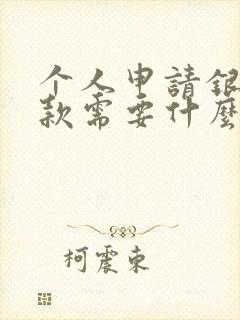 个人申請銀
款需要什麼
柯震東